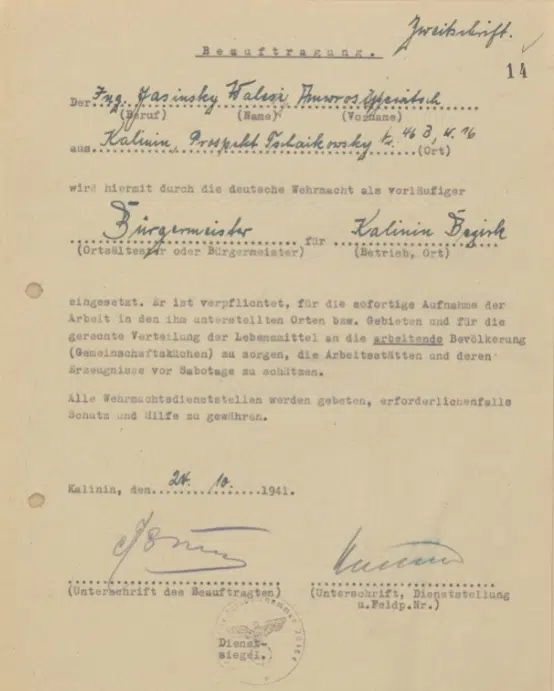 Zweitschrift.
Beauftragung.
14
Der Ing. Jasinsky Waleri Amwrosijewitsch
(Beruf) (Name) (Vorname)
aus Kalinin, Prospekt Tschaikowsky 46 B, 16 (Ort)
wird hiermit durch die deutsche Wehrmacht als vorläufiger
Bürgermeister für Kalinin Bezirk
(Ortsältester oder Bürgermeister) (Betrieb, Ort)
eingesetzt. Er ist verpflichtet, für die sofortige Aufnahme der
Arbeit in den ihm unterstellten Orten bzw. Gebieten und für die
gerechte Verteilung der Lebensmittel an die arbeitende Bevölkerung
(Gemeinschaftsküchen) zu sorgen, die Arbeitsstätten und deren
Erzeugnisse vor Sabotage zu schützen.
Alle Wehrmachtsdienststellen werden gebeten, erforderlichenfalls
Schutz und Hilfe zu gewähren.
Kalinin, den 24. 10. 1941.
(Unterschrift des Beauftragten) (Unterschrift, Dienststellung
u.Feldp.Nr.)
Dienst-
siegel.